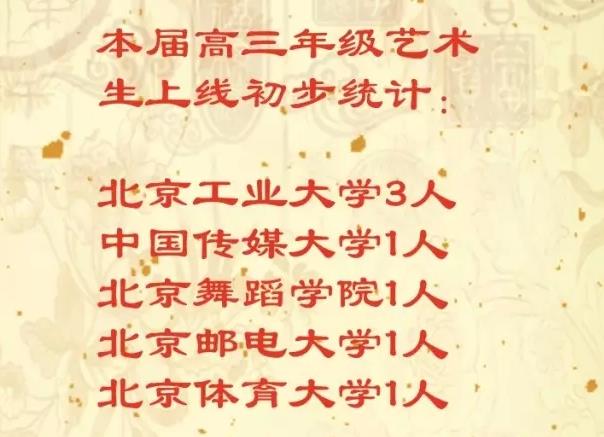 本届高三年级艺术
生上线初步统计：
北京工业大学3人
中国传媒大学1人
北京舞蹈学院1人
北京邮电大学1人
北京体育大学1人